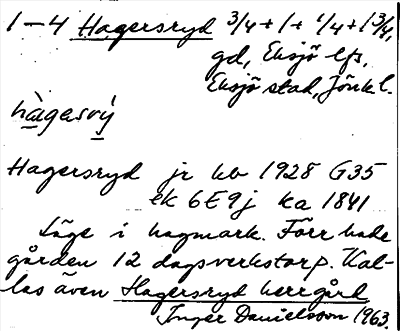 1–4 Hagersryd 3/4 + 1 + 1/4 + 1 3/4,
gd, Eksjö lfs,
Eksjö stad, Jönk l.
hàgasrý
Hagersryd jr hb 1928 G35
ek 6E9j ka 1841
Läge i hagmark. Förr hade
gården 12 dagsverkstorp. Kal-
las även Hagersryd herrgård
Inger Danielsson 1963.